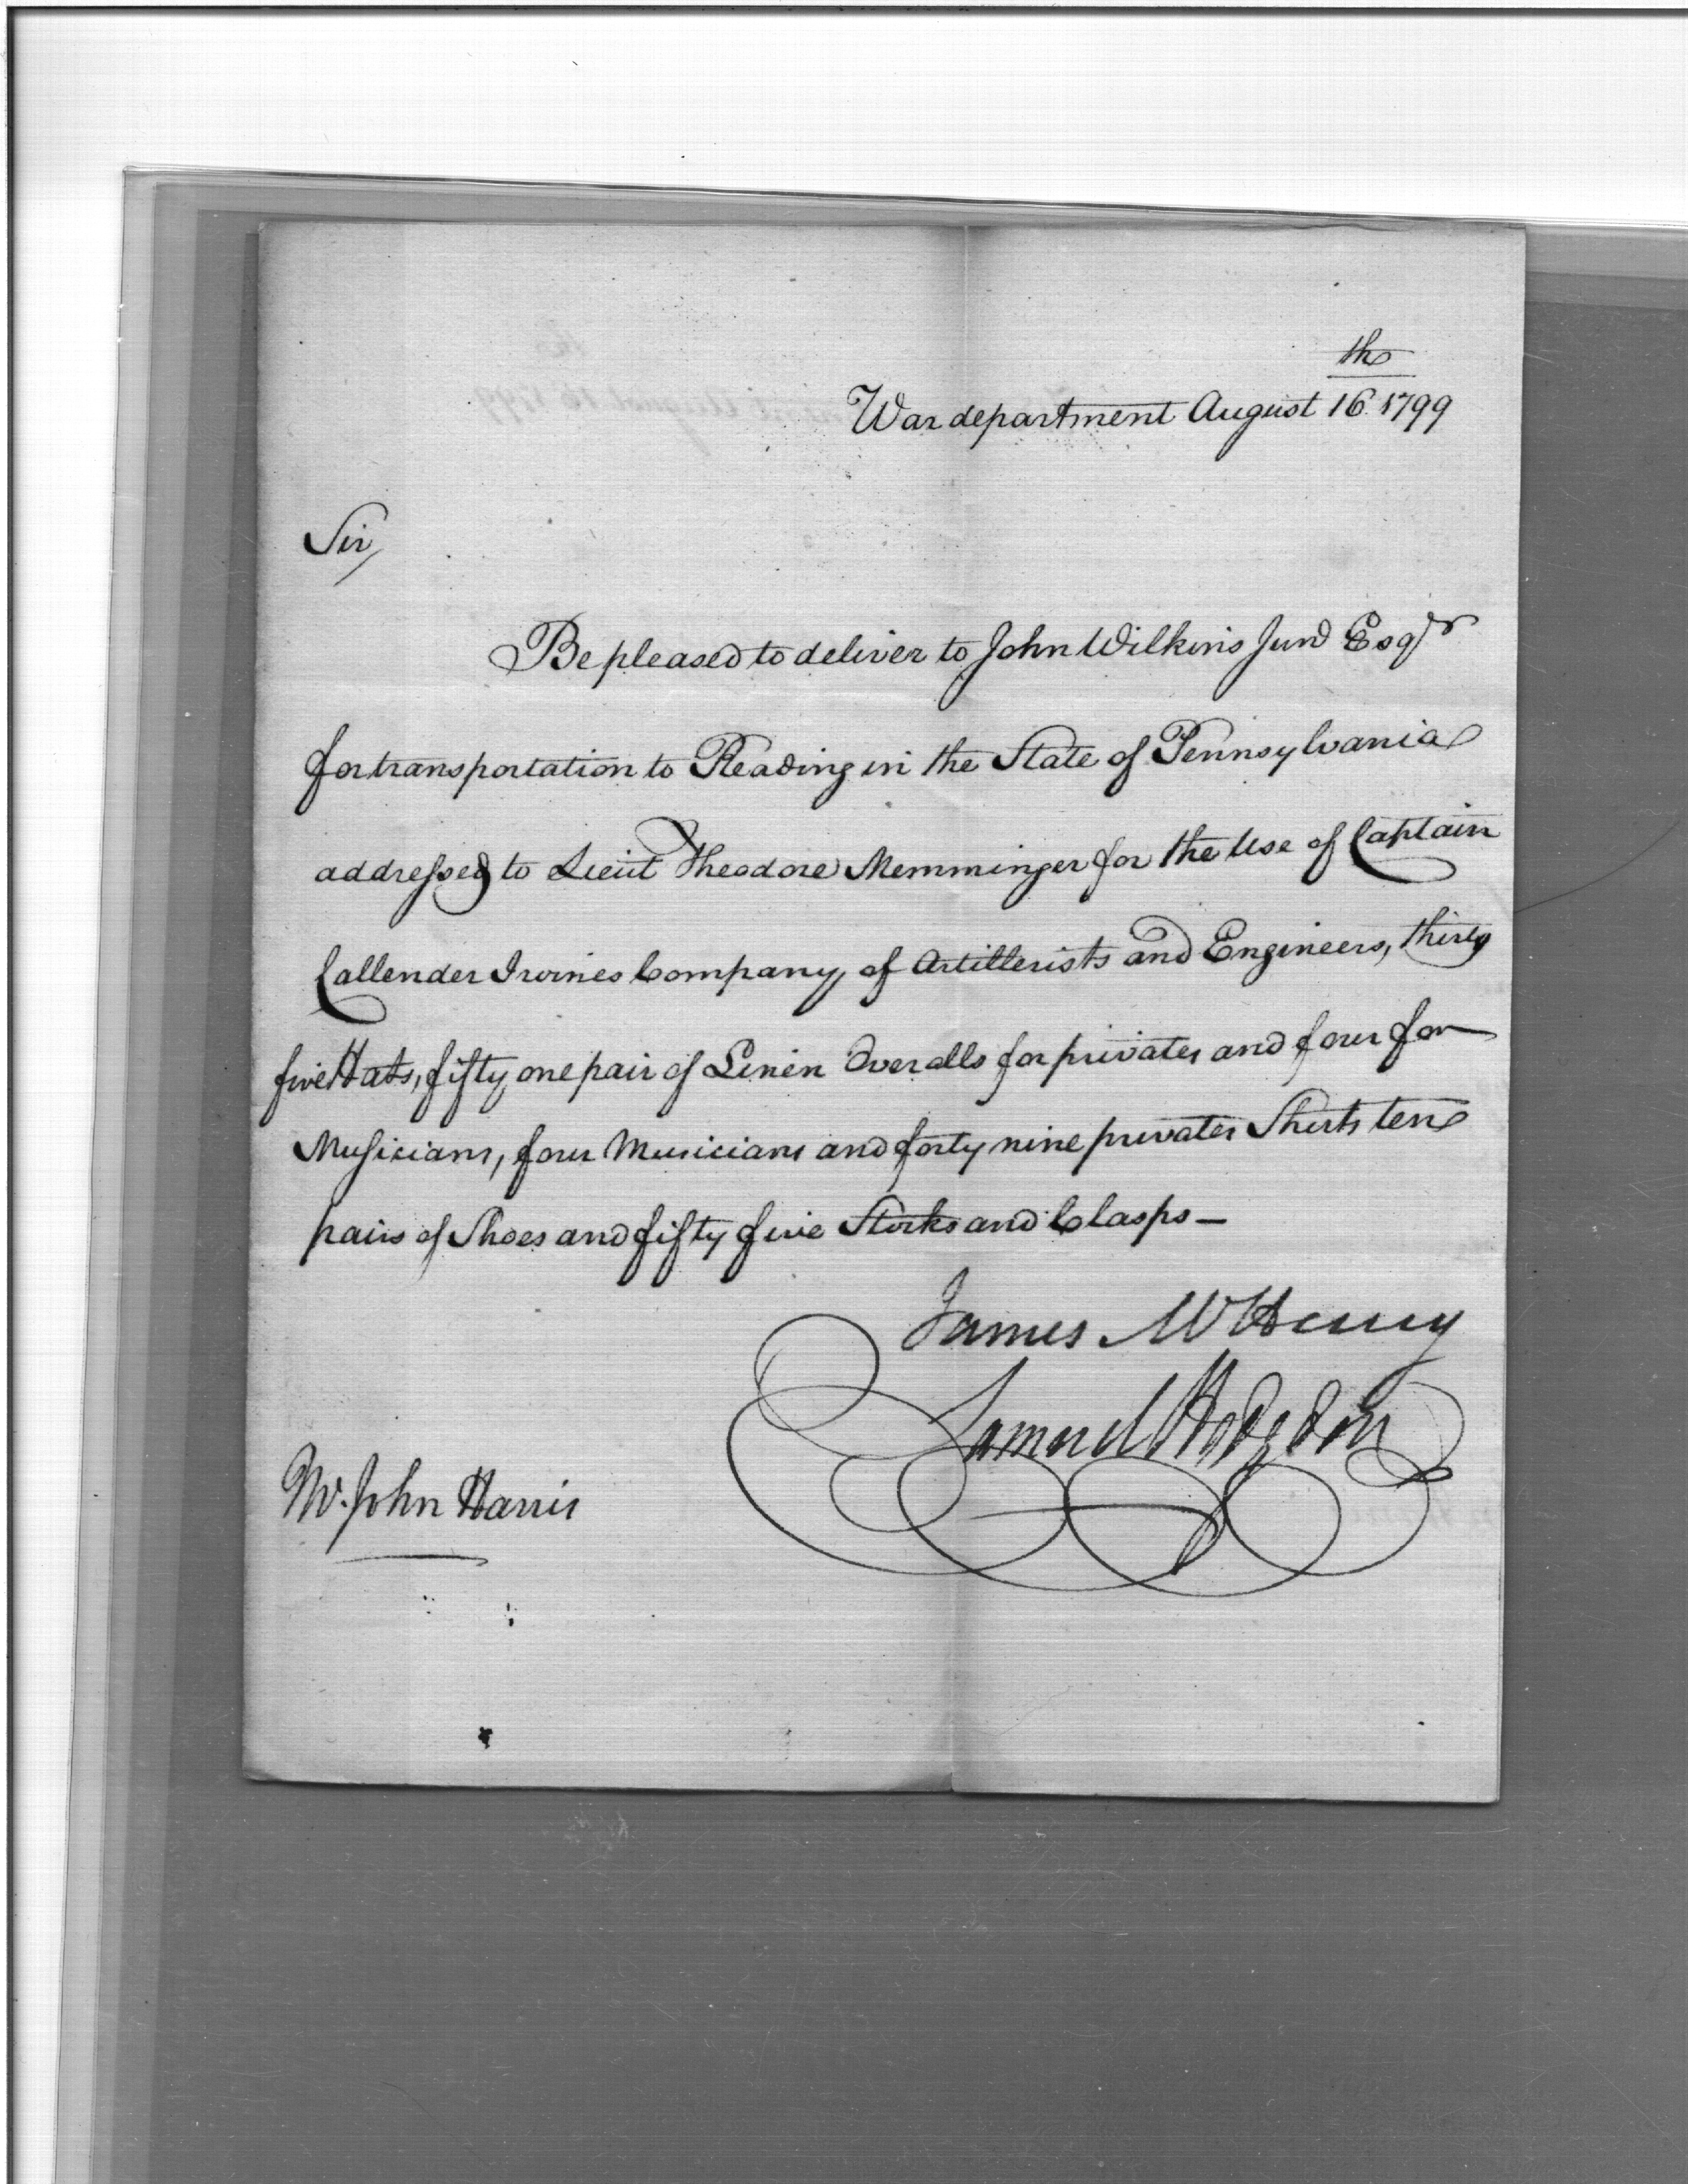 th
War department August 16 1799
Sir,
Be pleased to deliver to John Wilkins Junr Esqr
for transportation to Reading in the State of Pennsylvania
addressed to Lieut Theodore Memminger for the Use of Captain
Callender Irvines Company, of Artillerists and Engineers, thirty
five Hats, fifty one pair of Linen Overalls for privates and four for
Musicians, four Musicians and forty nine privates Shirts ten
pairs of Shoes and fifty five Stocks and Clasps —
James McHenry
Samuel Hodgdon
Mr. John Harris